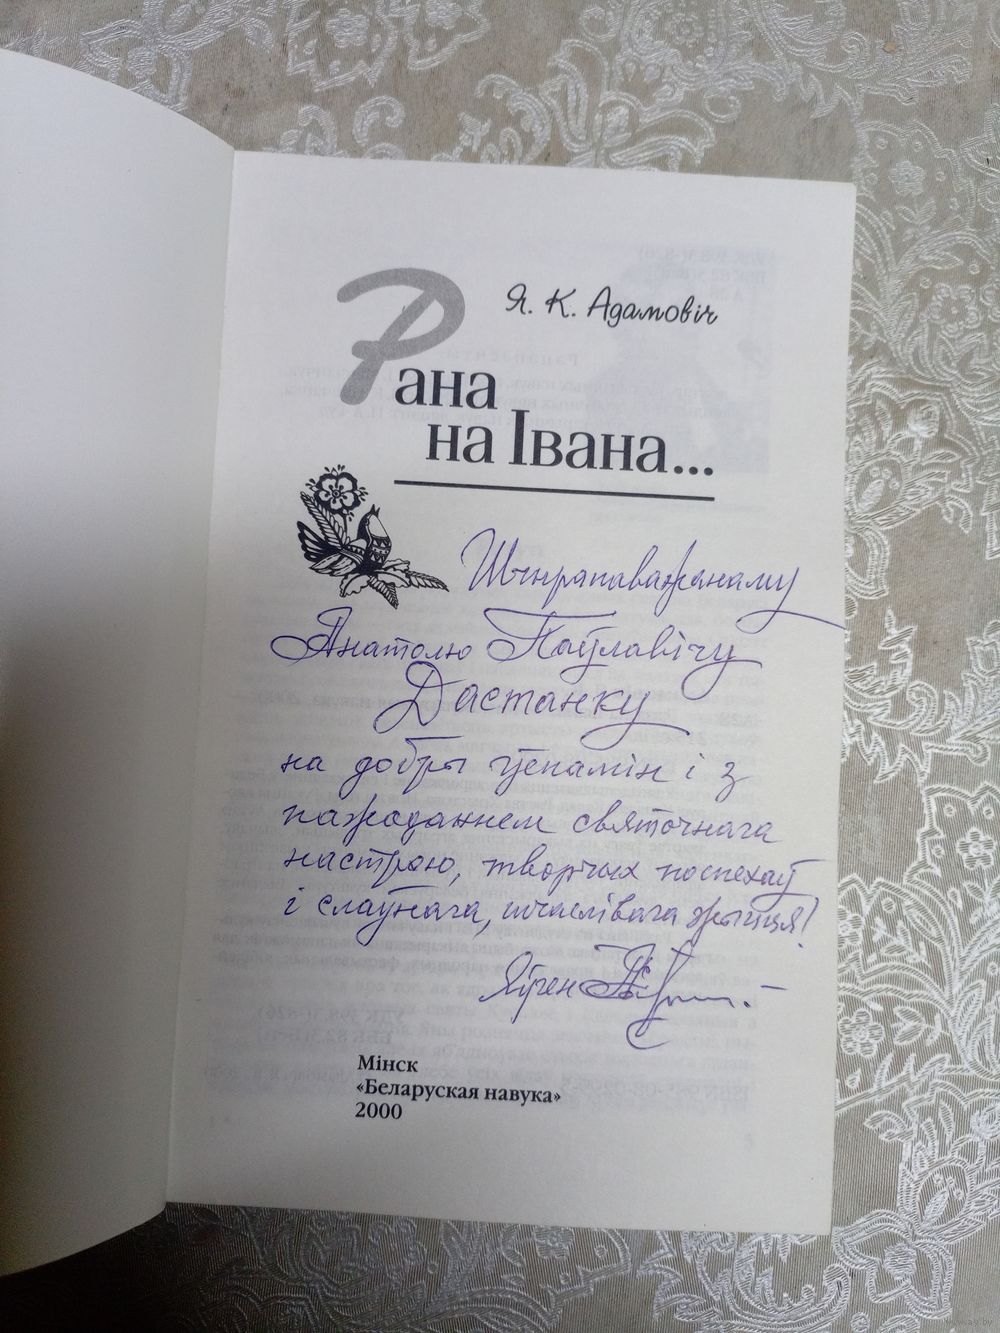 Я. К. Адамовіч
Рана
на Івана...
Шчырапаважанаму
Анатолю Паўлавічу
Дастанку
на добры ўспамін і з
пажаданнем святочнага
настрою, творчых поспехаў
і слаўнага, шчаслівага жыцця!
Мінск
«Беларуская навука»
2000